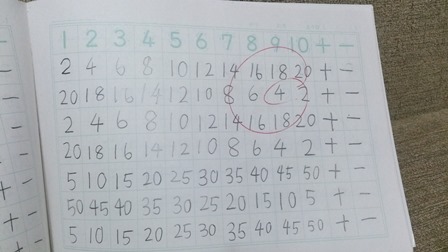 1 2 3 4 5 6 7 8 9 10 + -
2 4 6 8 10 12 14 16 18 20 + -
20 18 16 14 12 10 8 6 4 2 + -
2 4 6 8 10 12 14 16 18 20 + -
20 18 16 14 12 10 8 6 4 2 + -
5 10 15 20 25 30 35 40 45 50 + -
50 45 40 35 30 25 20 15 10 5 + -
5 10 15 20 25 30 35 40 45 50 + -